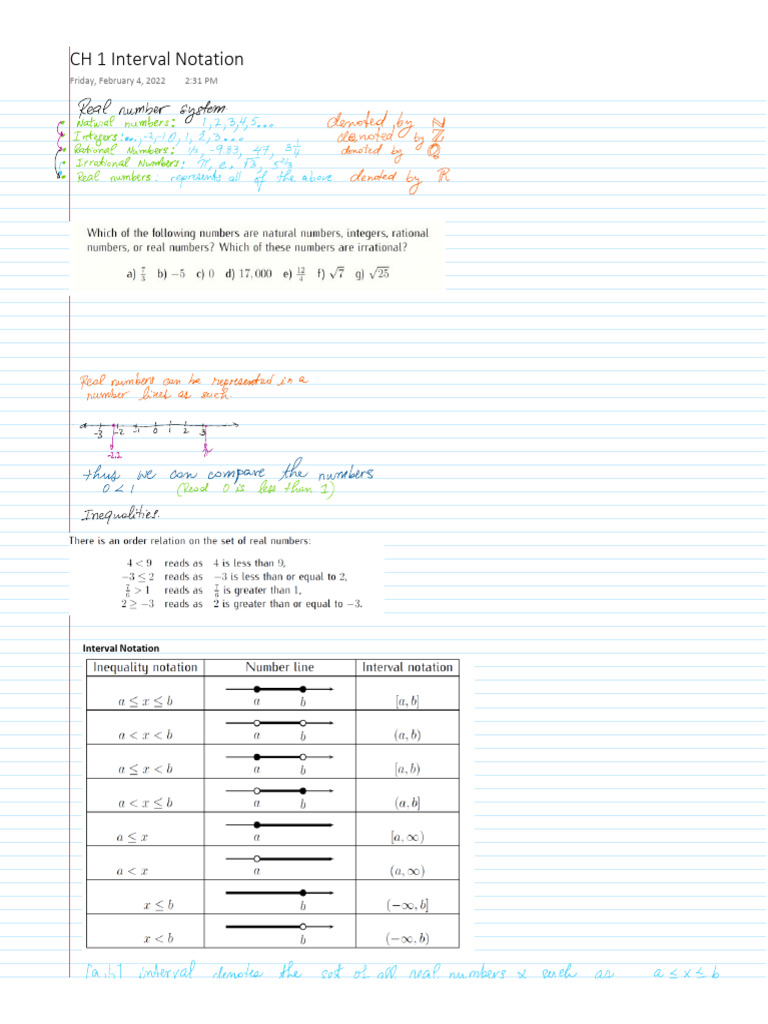 CH 1 Interval Notation
Friday, February 4, 2022 2:31 PM
Real number system
Natural numbers: 1, 2, 3, 4, 5... denoted by ℕ
Integers: ..., -2, -1, 0, 1, 2, 3... denoted by ℤ
Rational Numbers: 1/2, -9.83, 47, 3 1/4 denoted by ℚ
Irrational Numbers: π, e, √3, 5^2/3
Real numbers: represents all of the above denoted by ℝ
Which of the following numbers are natural numbers, integers, rational
numbers, or real numbers? Which of these numbers are irrational?
a) 7/3 b) −5 c) 0 d) 17,000 e) 12/4 f) √7 g) √25
Real numbers can be represented in a
number line as such.
-3 -2 -1 0 1 2 3
-2.2
thus we can compare the numbers
0 < 1 (Read 0 is less than 1)
Inequalities.
There is an order relation on the set of real numbers:
4 < 9 reads as 4 is less than 9,
−3 ≤ 2 reads as −3 is less than or equal to 2,
7/6 > 1 reads as 7/6 is greater than 1,
2 ≥ −3 reads as 2 is greater than or equal to −3.
Interval Notation
Inequality notation Number line Interval notation
a ≤ x ≤ b a b [a, b]
a < x < b a b (a, b)
a ≤ x < b a b [a, b)
a < x ≤ b a b (a, b]
a ≤ x a [a, ∞)
a < x a (a, ∞)
x ≤ b b (−∞, b]
x < b b (−∞, b)
[a,b] interval denotes the set of all real numbers x such as a ≤ x ≤ b